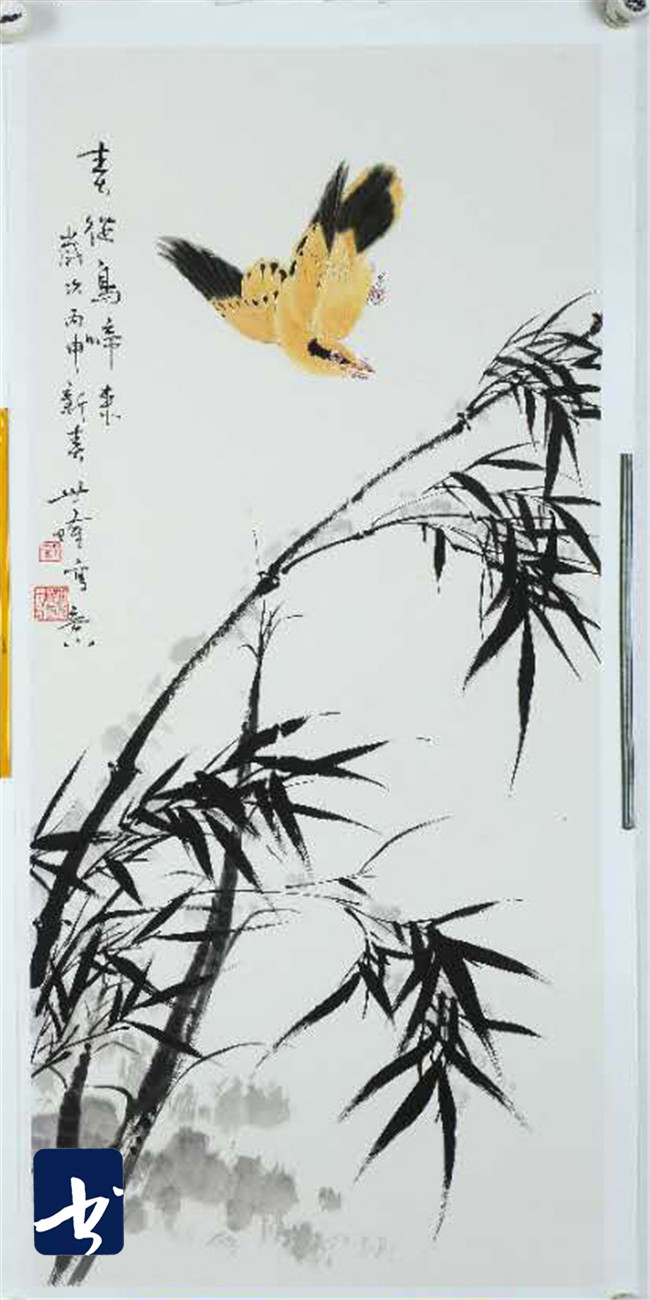 春從鳥啼來
歲次丙申新春世奇寫意
书